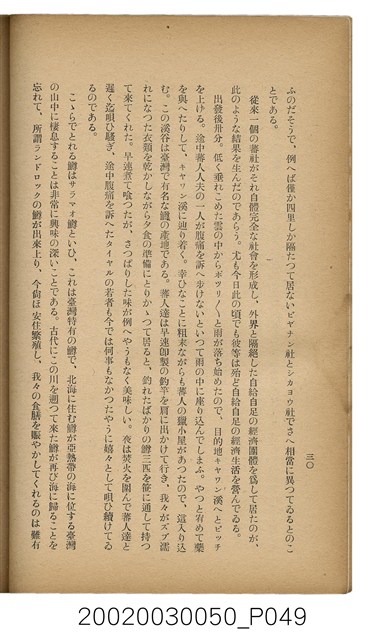 三〇
ふのだそうで、例へば僅か四里しか隔たつて居ないピヤナン社とシカヨウ社でさへ相當に異つてゐるとのこ
とである。
從來一個の蕃社がそれ自體完全な社會を形成し、外界と隔絶した自給自足の經濟團體を爲して居たのが、
此のような結果を生んだのであらう。尤も今日此の頃でも彼等は殆ど自給自足の經濟生活を營んでゐる。
出發後卅分。低く垂れこめた雲の中からポツリ〳〵と雨が落ち始めたので、目的地キヤワン溪へとピツチ
を上げる。途中蕃人人夫の一人が腹痛を訴へ歩けないといつて雨の中に座り込んでしまふ。やつと宥めて藥
を與へたりして、キヤワン溪に辿り着く。幸ひなことに粗末ながらも蕃人の獵小屋があつたので、這入り込
む。この溪谷は臺灣で有名な鱒の產地である。蕃人達は早速卸製の釣竿を肩に出かけて行き、我々がズブ濡
れになつた衣類を乾かしながら夕食の準備にとりかゝつて居ると、釣れたばかりの鱒三匹を笹に通して持つ
て來てくれた。早速煮て喰つたが、さつぱりした味が例へやうもなく美味しい。夜は焚火を圍んで蕃人達と
遲く迄唄ひ騷ぎ、途中腹痛を訴へたタイヤルの若者も今では何事もなかつたやうに嬉々として唄ひ續けてゐ
るのである。
こゝらでとれる鱒はサラマオ鱒といひ、これは臺灣特有の鱒で、北海に住む鱒が亞熱帶の海に位する臺灣
の山中に棲息することは非常に興味の深いことである。古代にこの川を遡つて來た鱒が再び海に歸ることを
忘れて、所謂ランドロックの鱒が出來上り、今尙ほ安住繁殖し、我々の食膳を賑やかしてくれるのは難有
20020030050_P049